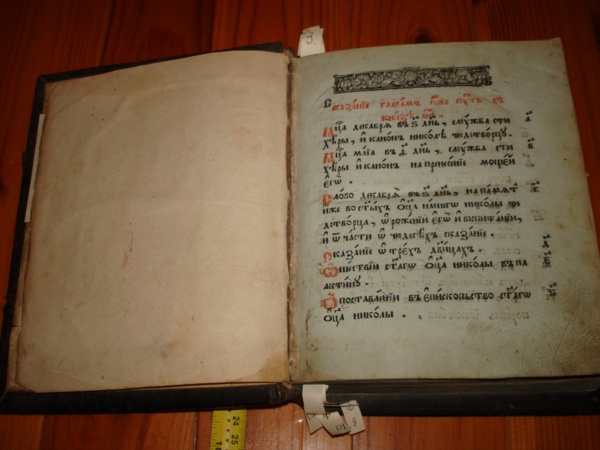 3.
Сказа́нїе глава́мъ и҆̀же сꙋ́ть въ
кни́зѣ се́й.
Мцⷭ҇а декабрѧ̀ въ ѕ҃ дн҃ь, слꙋ́жба сти
хе́ры, и҆ кано́нъ нико́лѣ чюдотво́рцꙋ. а҃
Мцⷭ҇а ма́їѧ въ ѳ҃ дн҃ь, слꙋ́жба сти
хе́ры и҆ кано́нъ на принесе́нїе моще́й
є҆гѡ̀.
Сло́во декабрѧ̀ въ ѕ҃ дн҃ь, на па́мѧт
и҆́же во ст҃ы́хъ ѻ҆ц҃а̀ на́шегѡ нико́лы чю
дотво́рца, ѡ҆ рожде́нїи є҆гѡ̀ и҆ воспита́нїи,
и҆ ѿ ча́сти ѡ҆ чюдесѣ́хъ сказа́нїе.
Сказа́нїе ѡ҆ тре́хъ дв҃и́цахъ. д҃
Ѡ҆ше́ствїи ст҃а́гѡ ѻ҆ц҃а̀ нико́лы въ па
лести́нꙋ.
Ѡ҆ поставле́нїи въ є҆пⷭ҇ко́пьство ст҃а́гѡ
ѻ҆ц҃а̀ нико́лы.
24
25
8
10